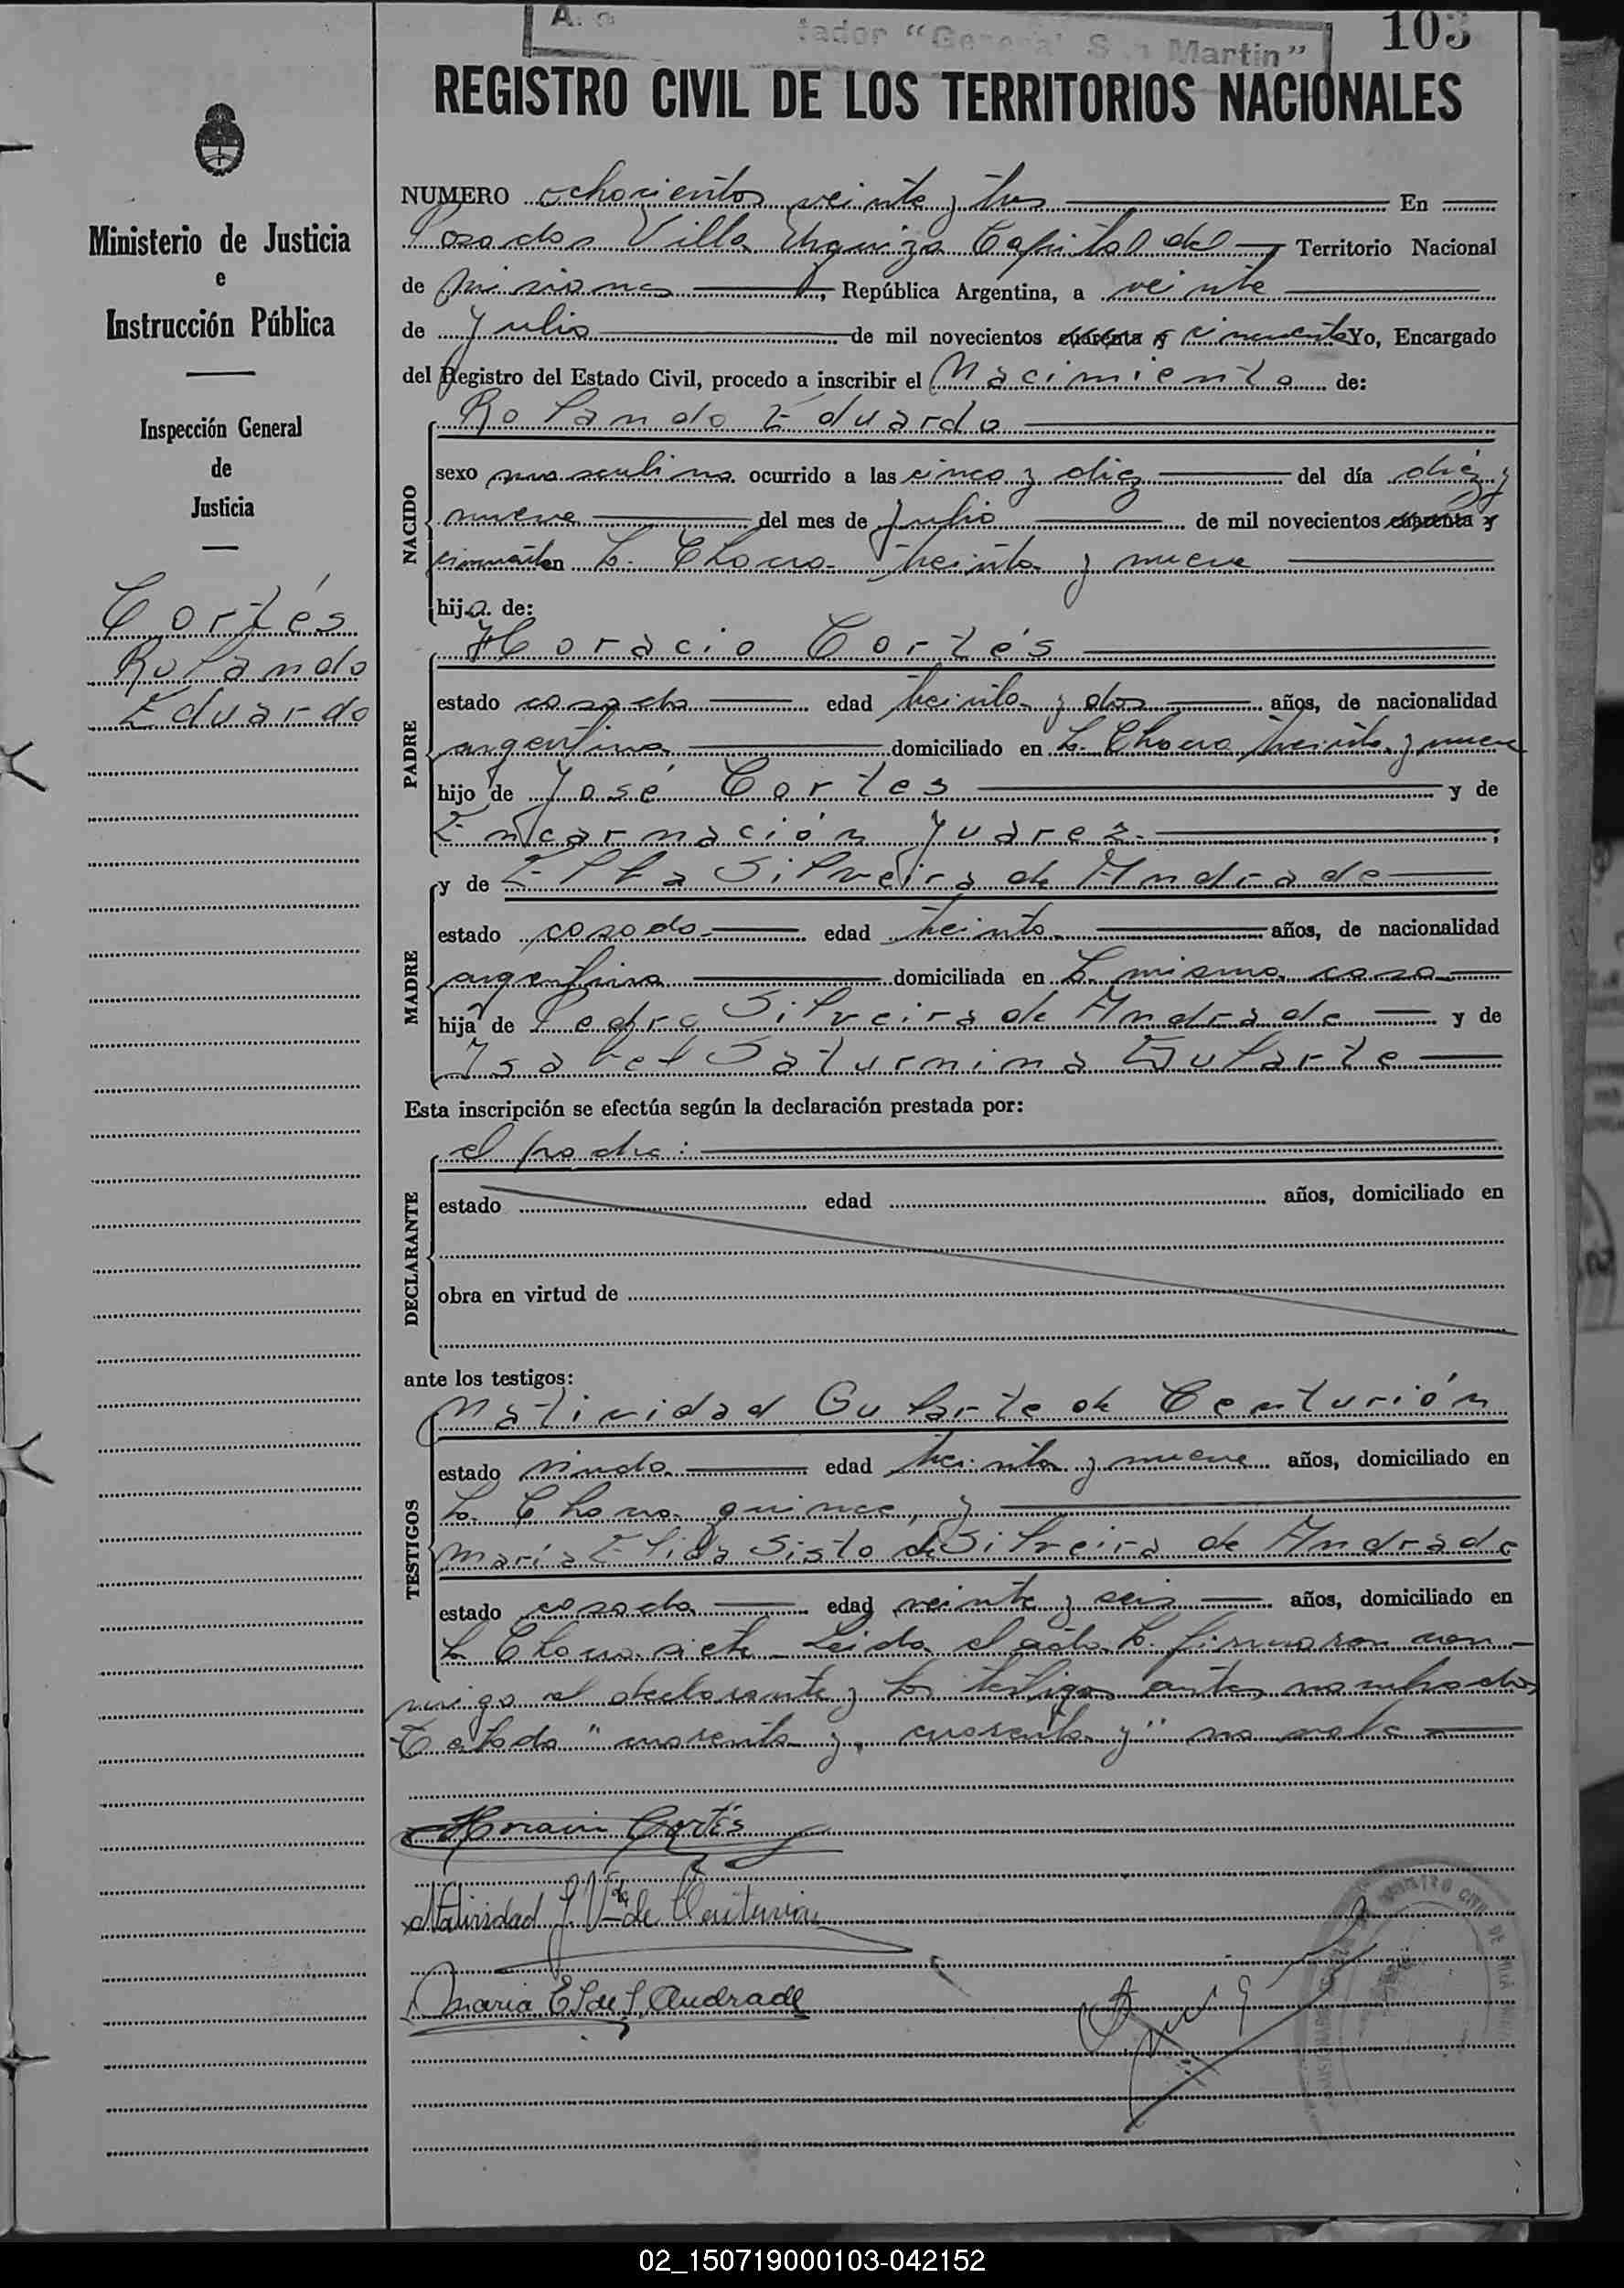 A. G
tador "General San Martin"
103
REGISTRO CIVIL DE LOS TERRITORIOS NACIONALES
Ministerio de Justicia
e
Instrucción Pública
Inspección General
de
Justicia
Cortés
Rolando
Eduardo
NUMERO ochocientos veinte y tres En
Posadas Villa Urquiza Capital del Territorio Nacional
de Misiones, República Argentina, a veinte
de Julio de mil novecientos cuarenta y cincuenta Yo, Encargado
del Registro del Estado Civil, procedo a inscribir el Nacimiento de:
NACIDO
Rolando Eduardo
sexo masculino ocurrido a las cinco y diez del día diez y
nueve del mes de Julio de mil novecientos cuarenta y
cincuenta en La Chacra treinta y nueve
hijo de:
PADRE
Horacio Cortés
estado casado edad treinta y dos años, de nacionalidad
argentina domiciliado en La Chacra treinta y nueve
hijo de José Cortes y de
Encarnación Juarez
MADRE
y de Elba Silveira de Andrade
estado casada edad treinta años, de nacionalidad
argentina domiciliada en La misma casa
hija de Pedro Silveira de Andrade y de
Isabel Saturnina Gularte
Esta inscripción se efectúa según la declaración prestada por:
DECLARANTE
el padre:
estado edad años, domiciliado en
obra en virtud de
ante los testigos:
TESTIGOS
Natividad Gularte de Centurión
estado viuda edad treinta y nueve años, domiciliado en
La Chacra quince y
María Elida Sisto de Silveira de Andrade
estado casada edad veinte y seis años, domiciliado en
La Chacra siete Leida el acta La firmaron con
migo el declarante y los testigos antes nombrados
Testado "cuarenta y, cuarenta y" no vale
Horacio Cortés
Natividad G. Vda de Centurión
Maria E S de S. Andrade
REGISTRO CIVIL DE
02_150719000103-042152